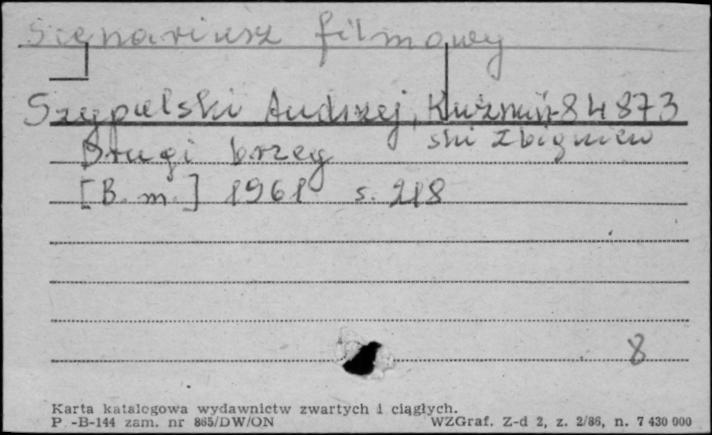 Scenariusz filmowy
Szypulski Andrzej, Kuźmiń- 84873
Drugi brzeg ski Zbigniew
[B. m.] 1961 s. 218
8
Karta katalogowa wydawnictw zwartych i ciągłych.
P.-B-144 zam. nr 865/DW/ON WZGraf. Z-d 2, z. 2/86, n. 7 430 000